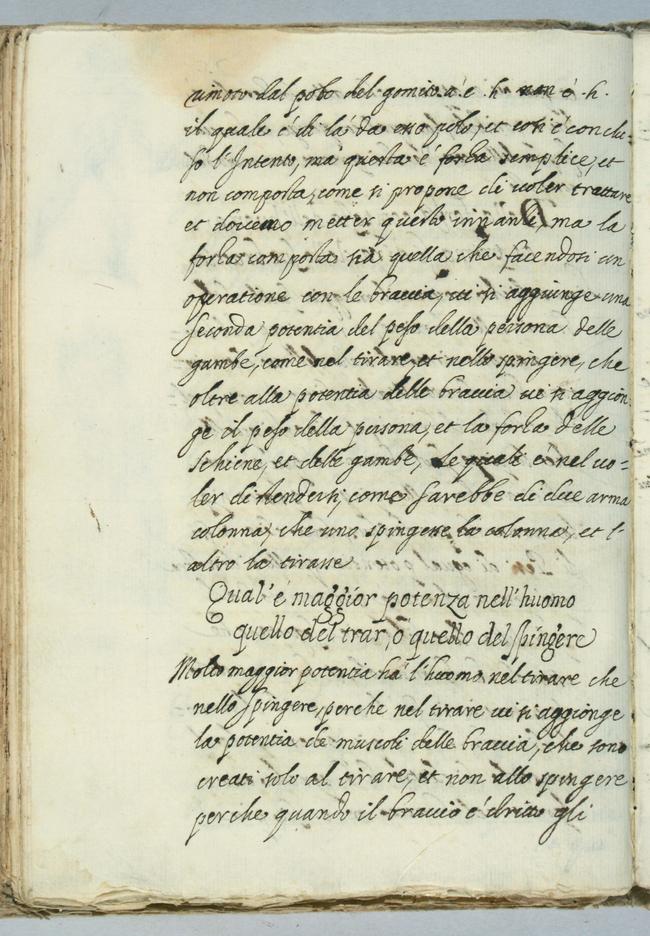 uimoto dal polo del gomito a è . h non è . h .
il quale è di là da esso polo, et così è conclu-
so l'Intento, ma questa è forza semplice, et
non composta, come si propone di uoler trattare
et douemo metter questo innanzi, ma la
forza composta sia quella che facendosi un
operatione con le braccia, ui si aggiunge una
seconda potentia del peso della persona delle
gambe, come nel tirare, et nello spingere, che
oltre alla potentia delle braccia ui si aggion
ge il peso della persona, et la forza delle
schiene, et delle gambe, le quali è nel uo=
ler distendersi, come sarebbe di due a una
colonna, che uno spingesse la colonna, et l'
altro la tirasse
Qual' è maggior potenza nell' huomo
quello del trar, o quello del spingere
Molto maggior potentia hà l'huomo nel tirare che
nello spingere, perche nel tirare ui si aggionge
la potentia de muscoli delle braccia, che sono
creati solo al tirare, et non allo spingere
perche quando il braccio è dritto gli